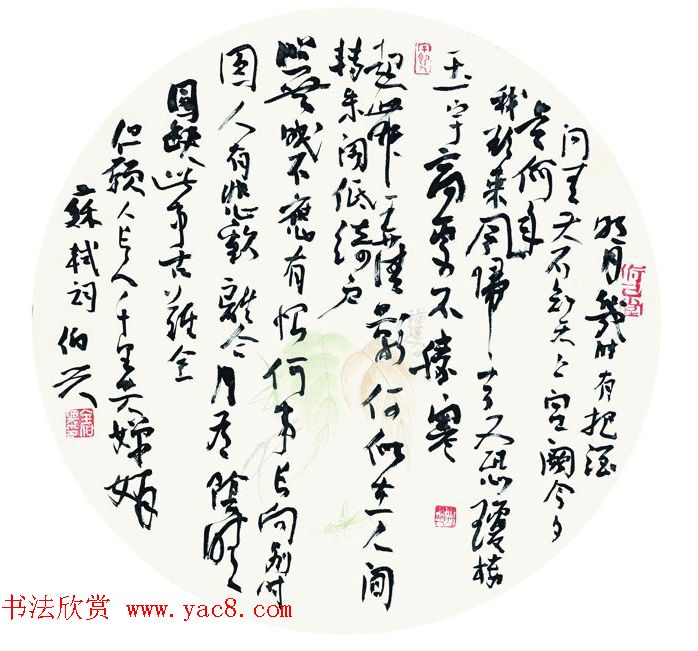 明月几时有把酒
问青天不知天上宫阙今夕
是何年
我欲乘风归去又恐琼楼
玉宇高处不胜寒
起舞弄清影何似在人间
转朱阁低绮户
照无眠不应有恨何事长向别时
圆人有悲欢离合月有阴晴
圆缺此事古难全
但愿人长久千里共婵娟
苏轼词 伯兴
书法欣赏 www.yac8.com